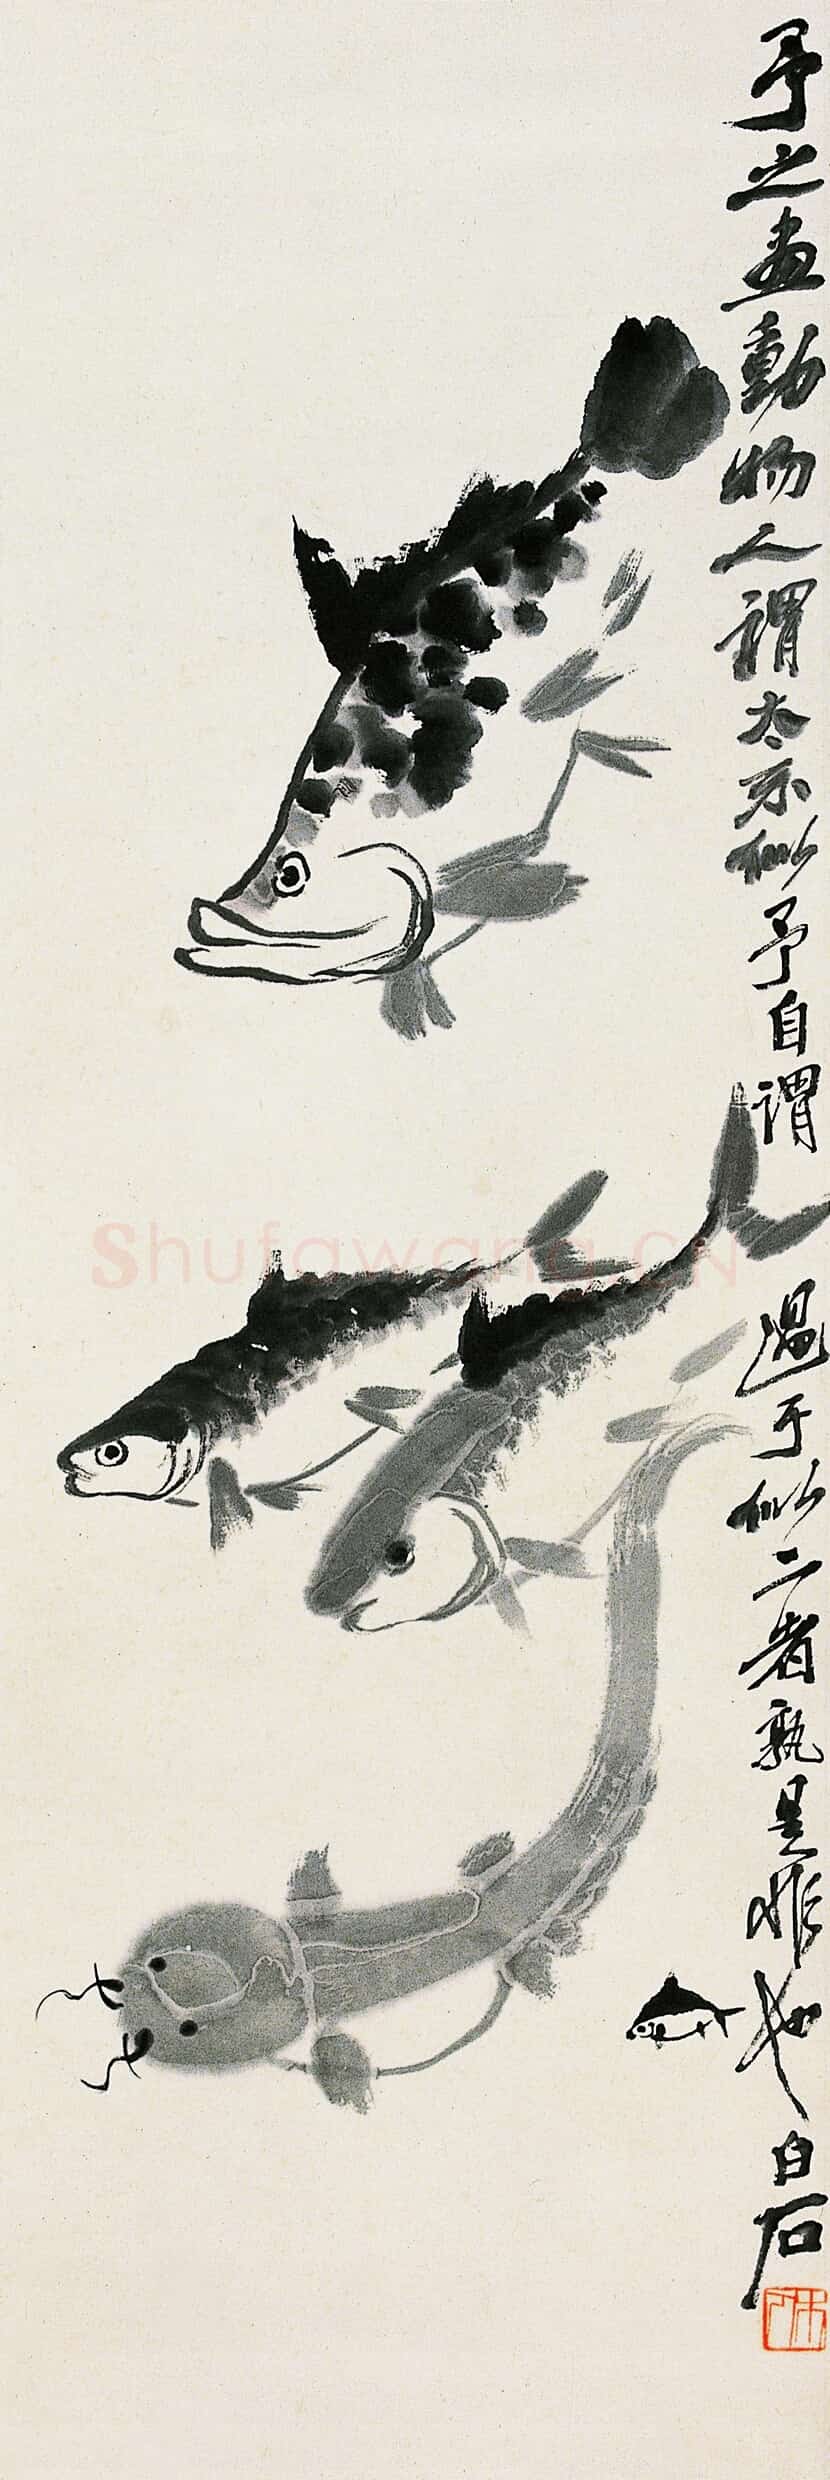 予之畫動物人謂太不似予自謂過于似二者孰是非也白石
Shufawang.CN
木人